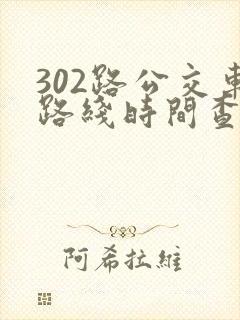 302路公交車
路綫時間查
阿希拉維